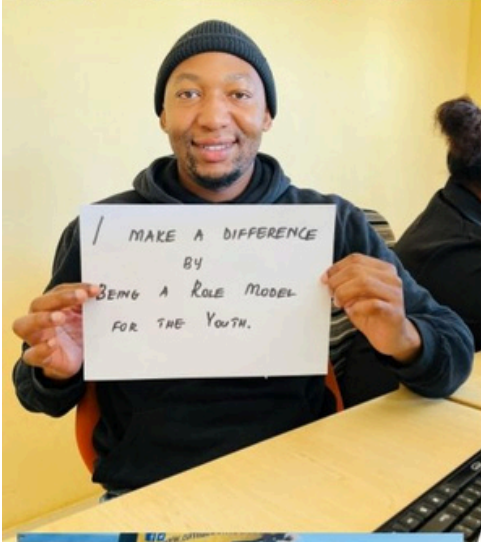 I MAKE A DIFFERENCE
BY
BEING A ROLE MODEL
FOR THE YOUTH.